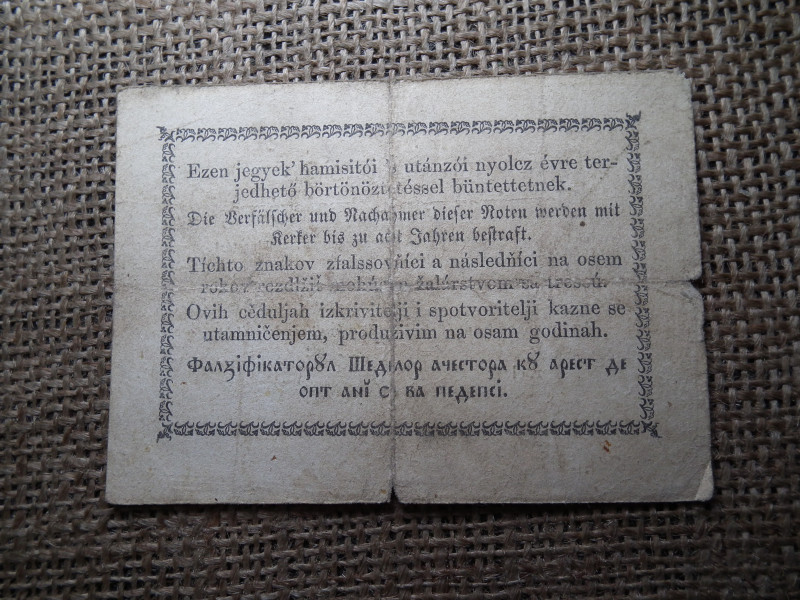 Ezen jegyek' hamisitói 's utánzói nyolcz évre ter-
jedhető börtönöztetéssel büntettetnek.
Die Verfälscher und Nachahmer dieser Noten werden mit
Kerker bis zu acht Jahren bestraft.
Tíchto znakov zfalssovňíci a následňíci na osem
rokov žalárstvom sa trescú.
Ovih cèduljah izkrivitelji i spotvoritelji kazne se
utamničenjem, produživim na osam godinah.
Фалзіфікаторꙋл Шеділор ачестора кꙋ арест де
опт анї се ва педепсі.